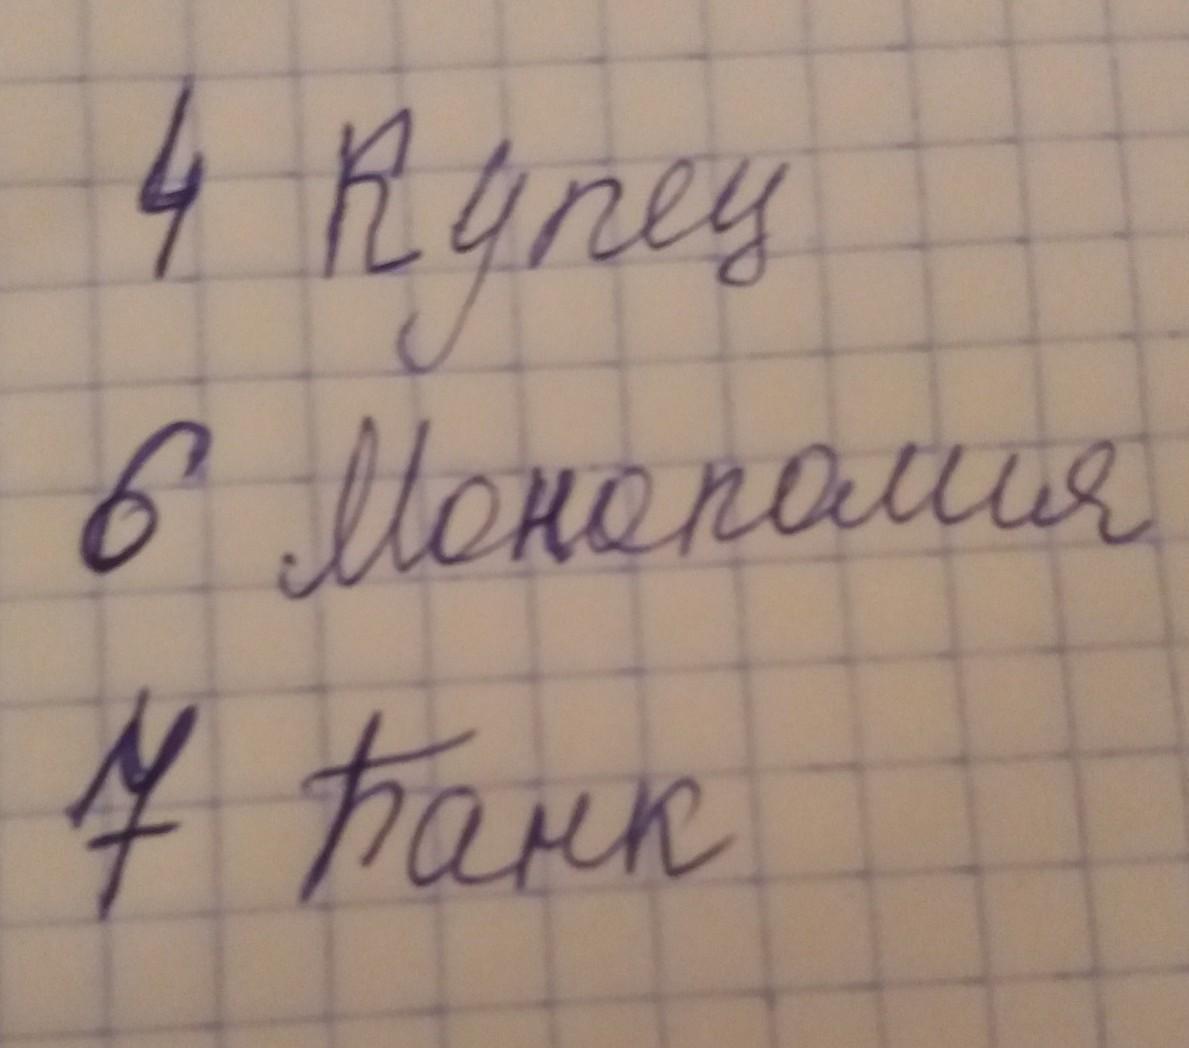 4 Купец
6 Монополия
7 Банк